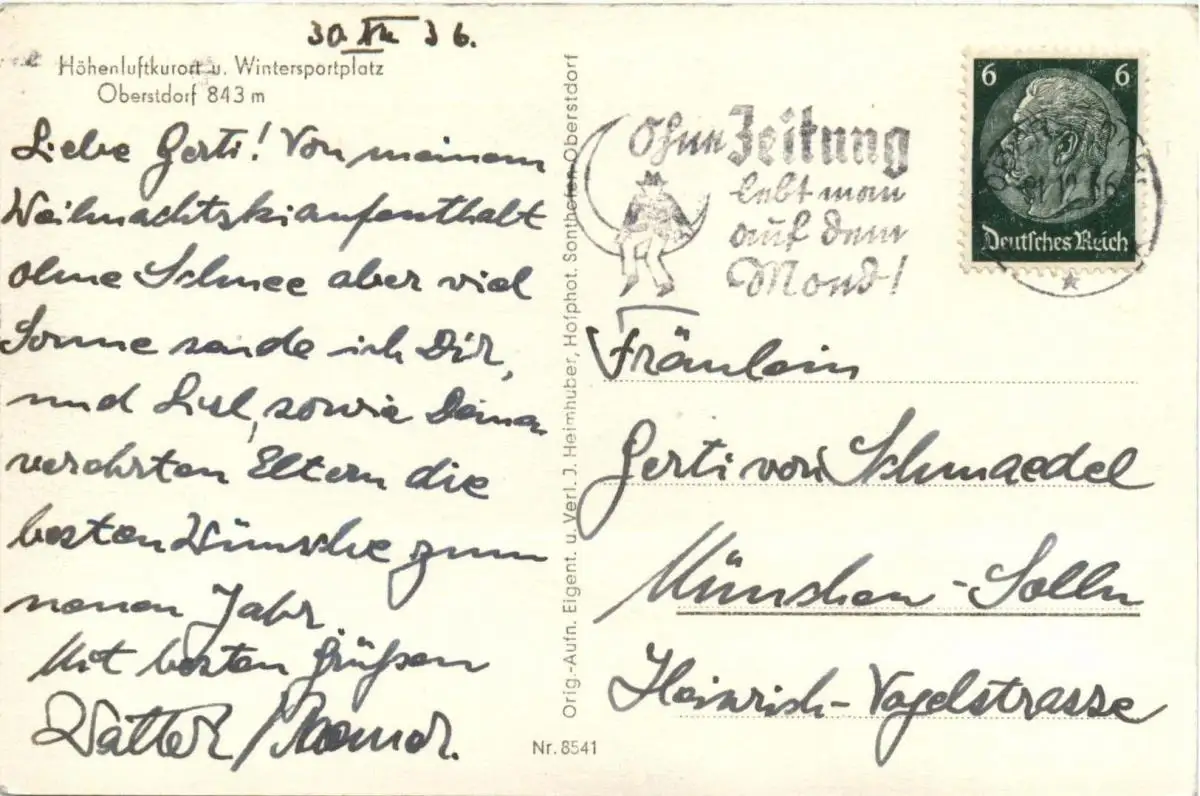 30. XII. 36.
Höhenluftkurort u. Wintersportplatz
Oberstdorf 843 m
Liebe Gerti! Von meinem
Weihnachtskiaufenthalt
ohne Schnee aber viel
Sonne sende ich Dir,
und Liesl, sowie Deinen
verehrten Eltern die
besten Wünsche zum
neuen Jahr.
Mit besten Grüßen
Walter
Orig.-Aufn. Eigent. u. Verl. J. Heimhuber, Hofphot. Sonthofen-Oberstdorf
Nr. 8541
Ohne Zeitung
lebt man
auf dem
Mond!
6 6
Deutsches Reich
Fräulein
Gerti von Schmaedel
München-Solln
Heinrich-Vogelstrasse